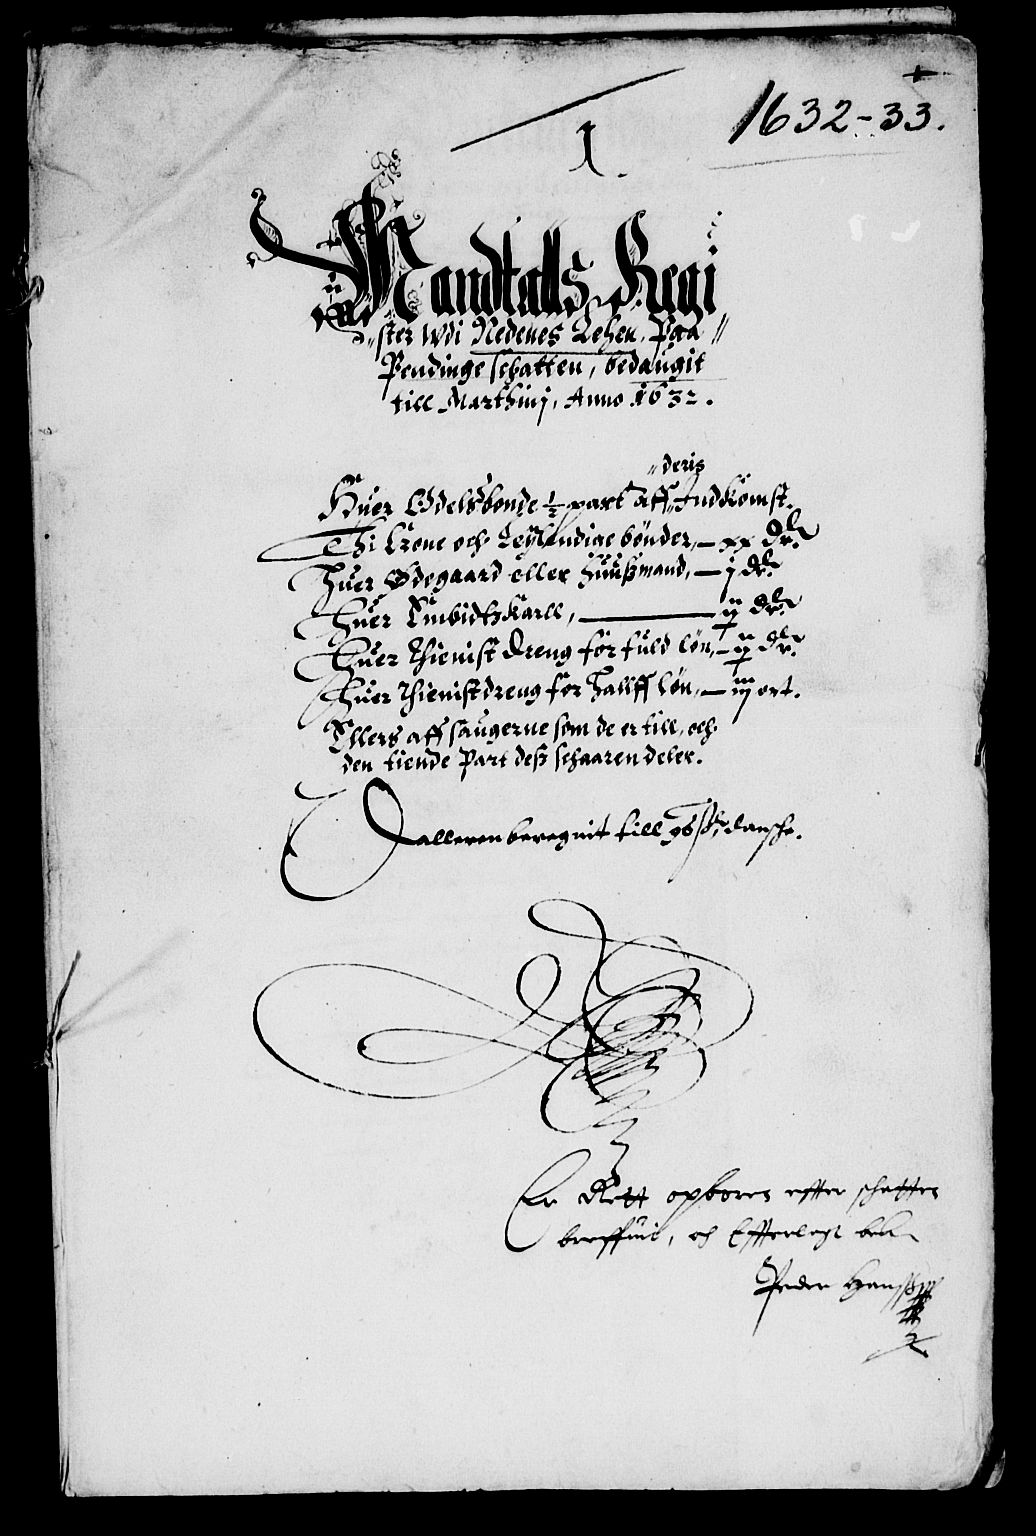 1632-33.
1.
Mandtalls Regi
ster Wdi Nedenes Lehen, Paa
Pendinge schatten, bedaugit
till Marthinj, Anno 1632.
deris
Huer Odelsbonde ½ part aff Indkomst.
Thi Krone och Leylendige bønder, – xx dlr.
Huer Ødegaard eller Huußmand, – j dlr.
Huer Embidtzkarll, – ij dlr.
Huer Thienist dreng for fuld løn, – ij dlr.
Huer Thienistdreng for Hallff løn, – iij ort.
Ellers aff saugerne som de er till, och
den tiende Part deß schaaren deler.
Dalleren beregnit till 96 ß danshe.
Er Rett opboren effter schatte
breffuit, och Efferlagt
Peder Hanssen